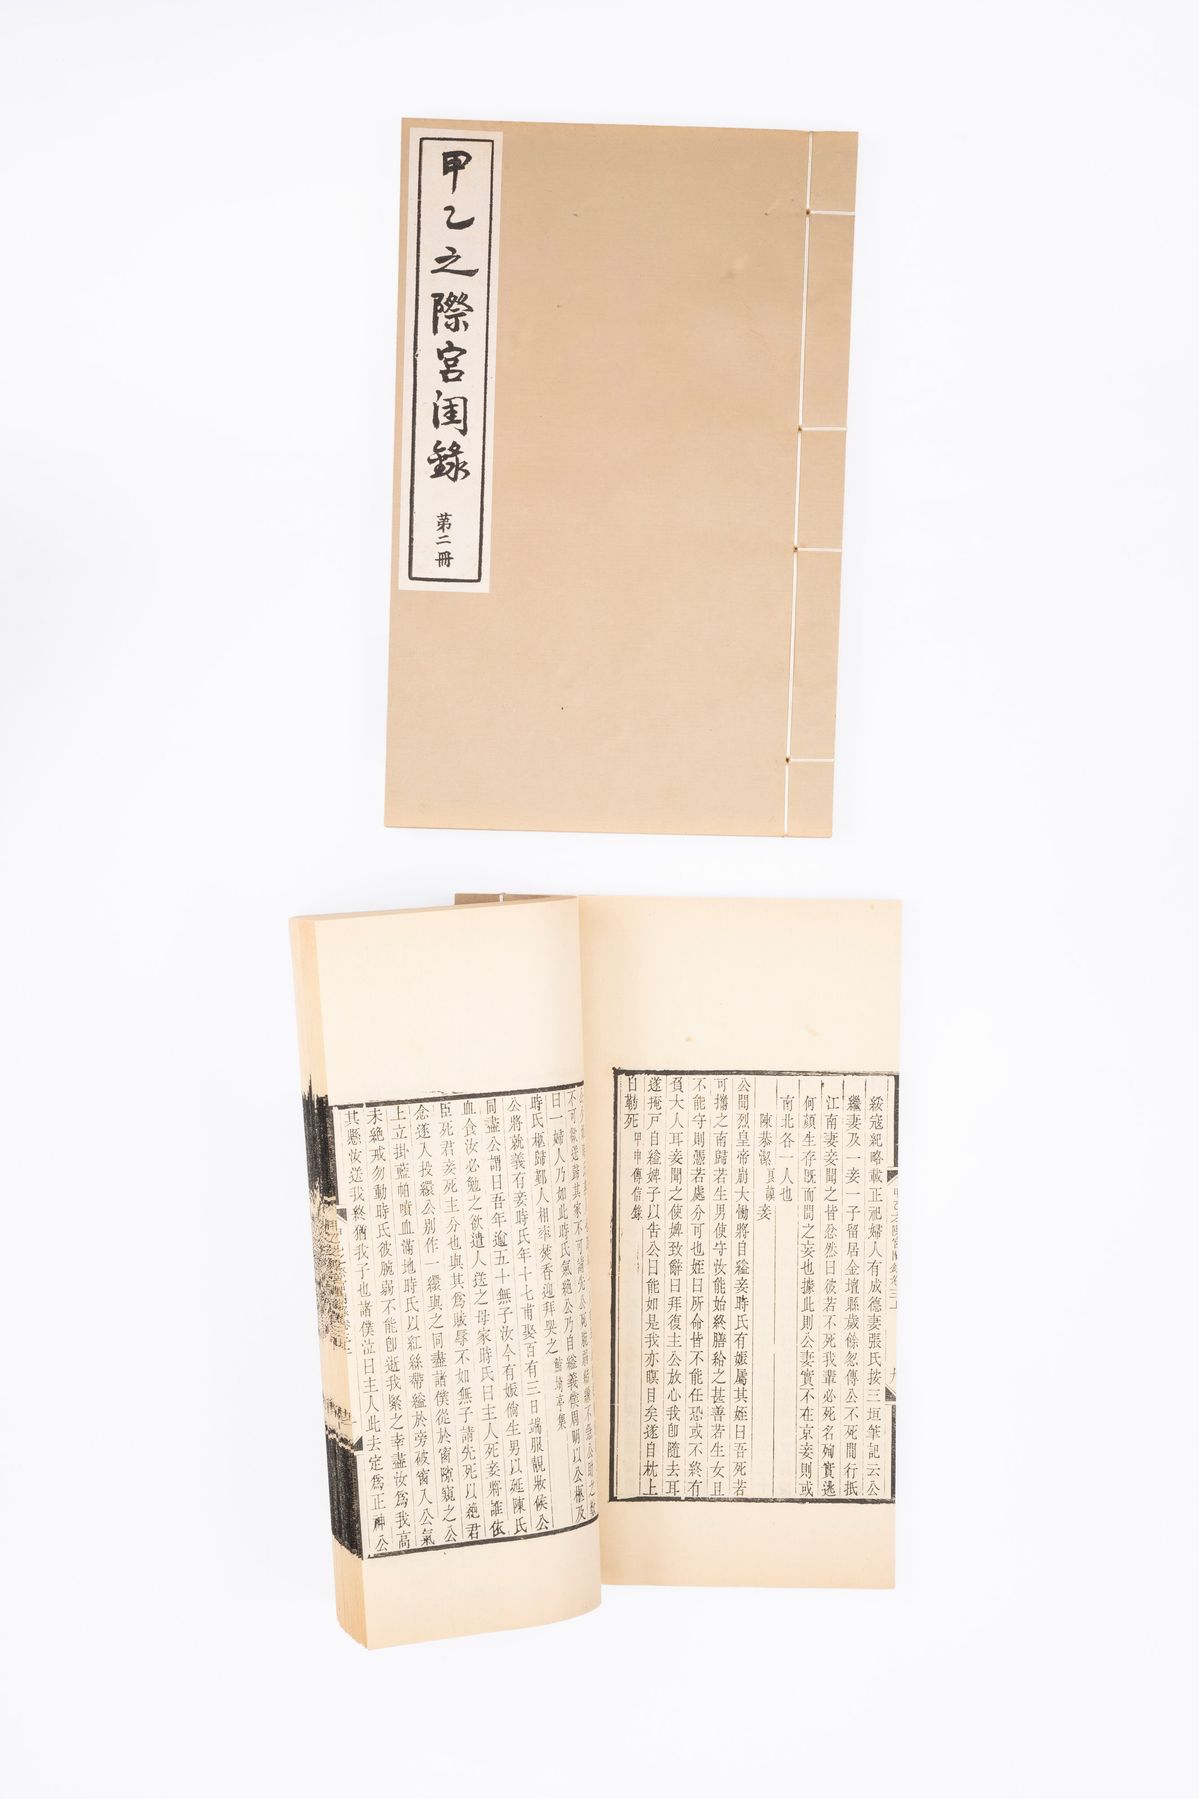 甲乙之際宮闺錄
第二冊
綏寇紀略載正祀婦人有成德妻張氏按三垣筆記云公
繼妻及一妾一子留居金壇縣歲餘忽傳公不死間行抵
江南妻妾聞之皆忿然曰彼若不死我輩必死名殉實逃
何顏生存既而間之妄也據此則公妻實不在京妾則或
南北各一人也
陳恭潔良謨妾
公聞烈皇帝崩大慟將自縊妾時氏有娠屬其姪曰吾死若
可攜之南歸若生男使守汝能始終膳給之甚善若生女且
不能守則憑若處分可也姪曰所命皆不能任恐或不終有
負大人耳妾聞之使婢致辭曰拜復主公放心我卽隨去耳
遂掩戸自縊婢子以告公曰能如是我亦瞑目矣遂自枕上
白勒死甲申傳信錄
曰一婦人乃如此時氏氣絶公乃自縊義僕周明以公柩及
時氏柩歸鄞人相率焚香迎拜哭之鮚埼亭集
公將就義有妾時氏年十七甫娶百有三日端服靚妝侯公
同盡公謂曰吾年逾五十無子汝今有娠倘生男以延陳氏
血食汝必勉之欲遣人送之母家時氏曰主人死妾將誰依
臣死君妾死主分也與其爲賊辱不如無子請先死以絶君
念遂入投繯公别作一繯與之同盡諸僕從於窗隙窺之公
上立掛藍帕噴血滿地時氏以紅絲帶縊於旁破窗入公氣
未絶戒勿動時氏彼腕弱不能卽逝我緊之幸盡汝爲我高
其懸汝送我終猶我子也諸僕泣曰主人此去定爲正神公